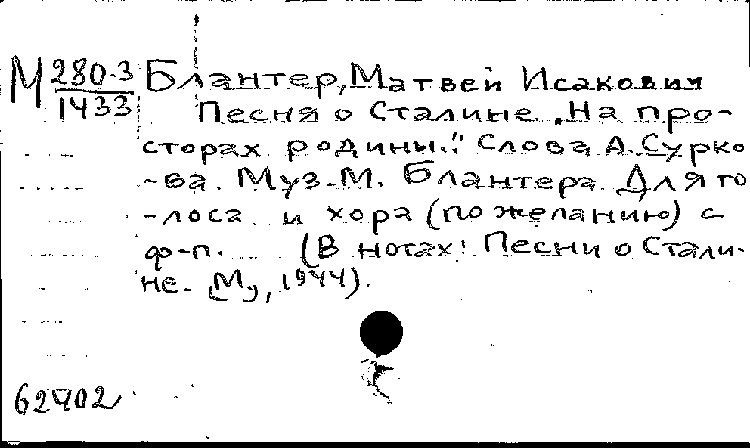 М 280-3/1433 Блантер, Матвей Исакович
Песня о Сталине „На про-
сторах родины..." Слова А. Сурко
-ва. Муз. М. Блантера. Для го
-лоса и хора (по желанию) с
ф-п. (В нотах: Песни о Стали-
не. [М], 1944).
62402